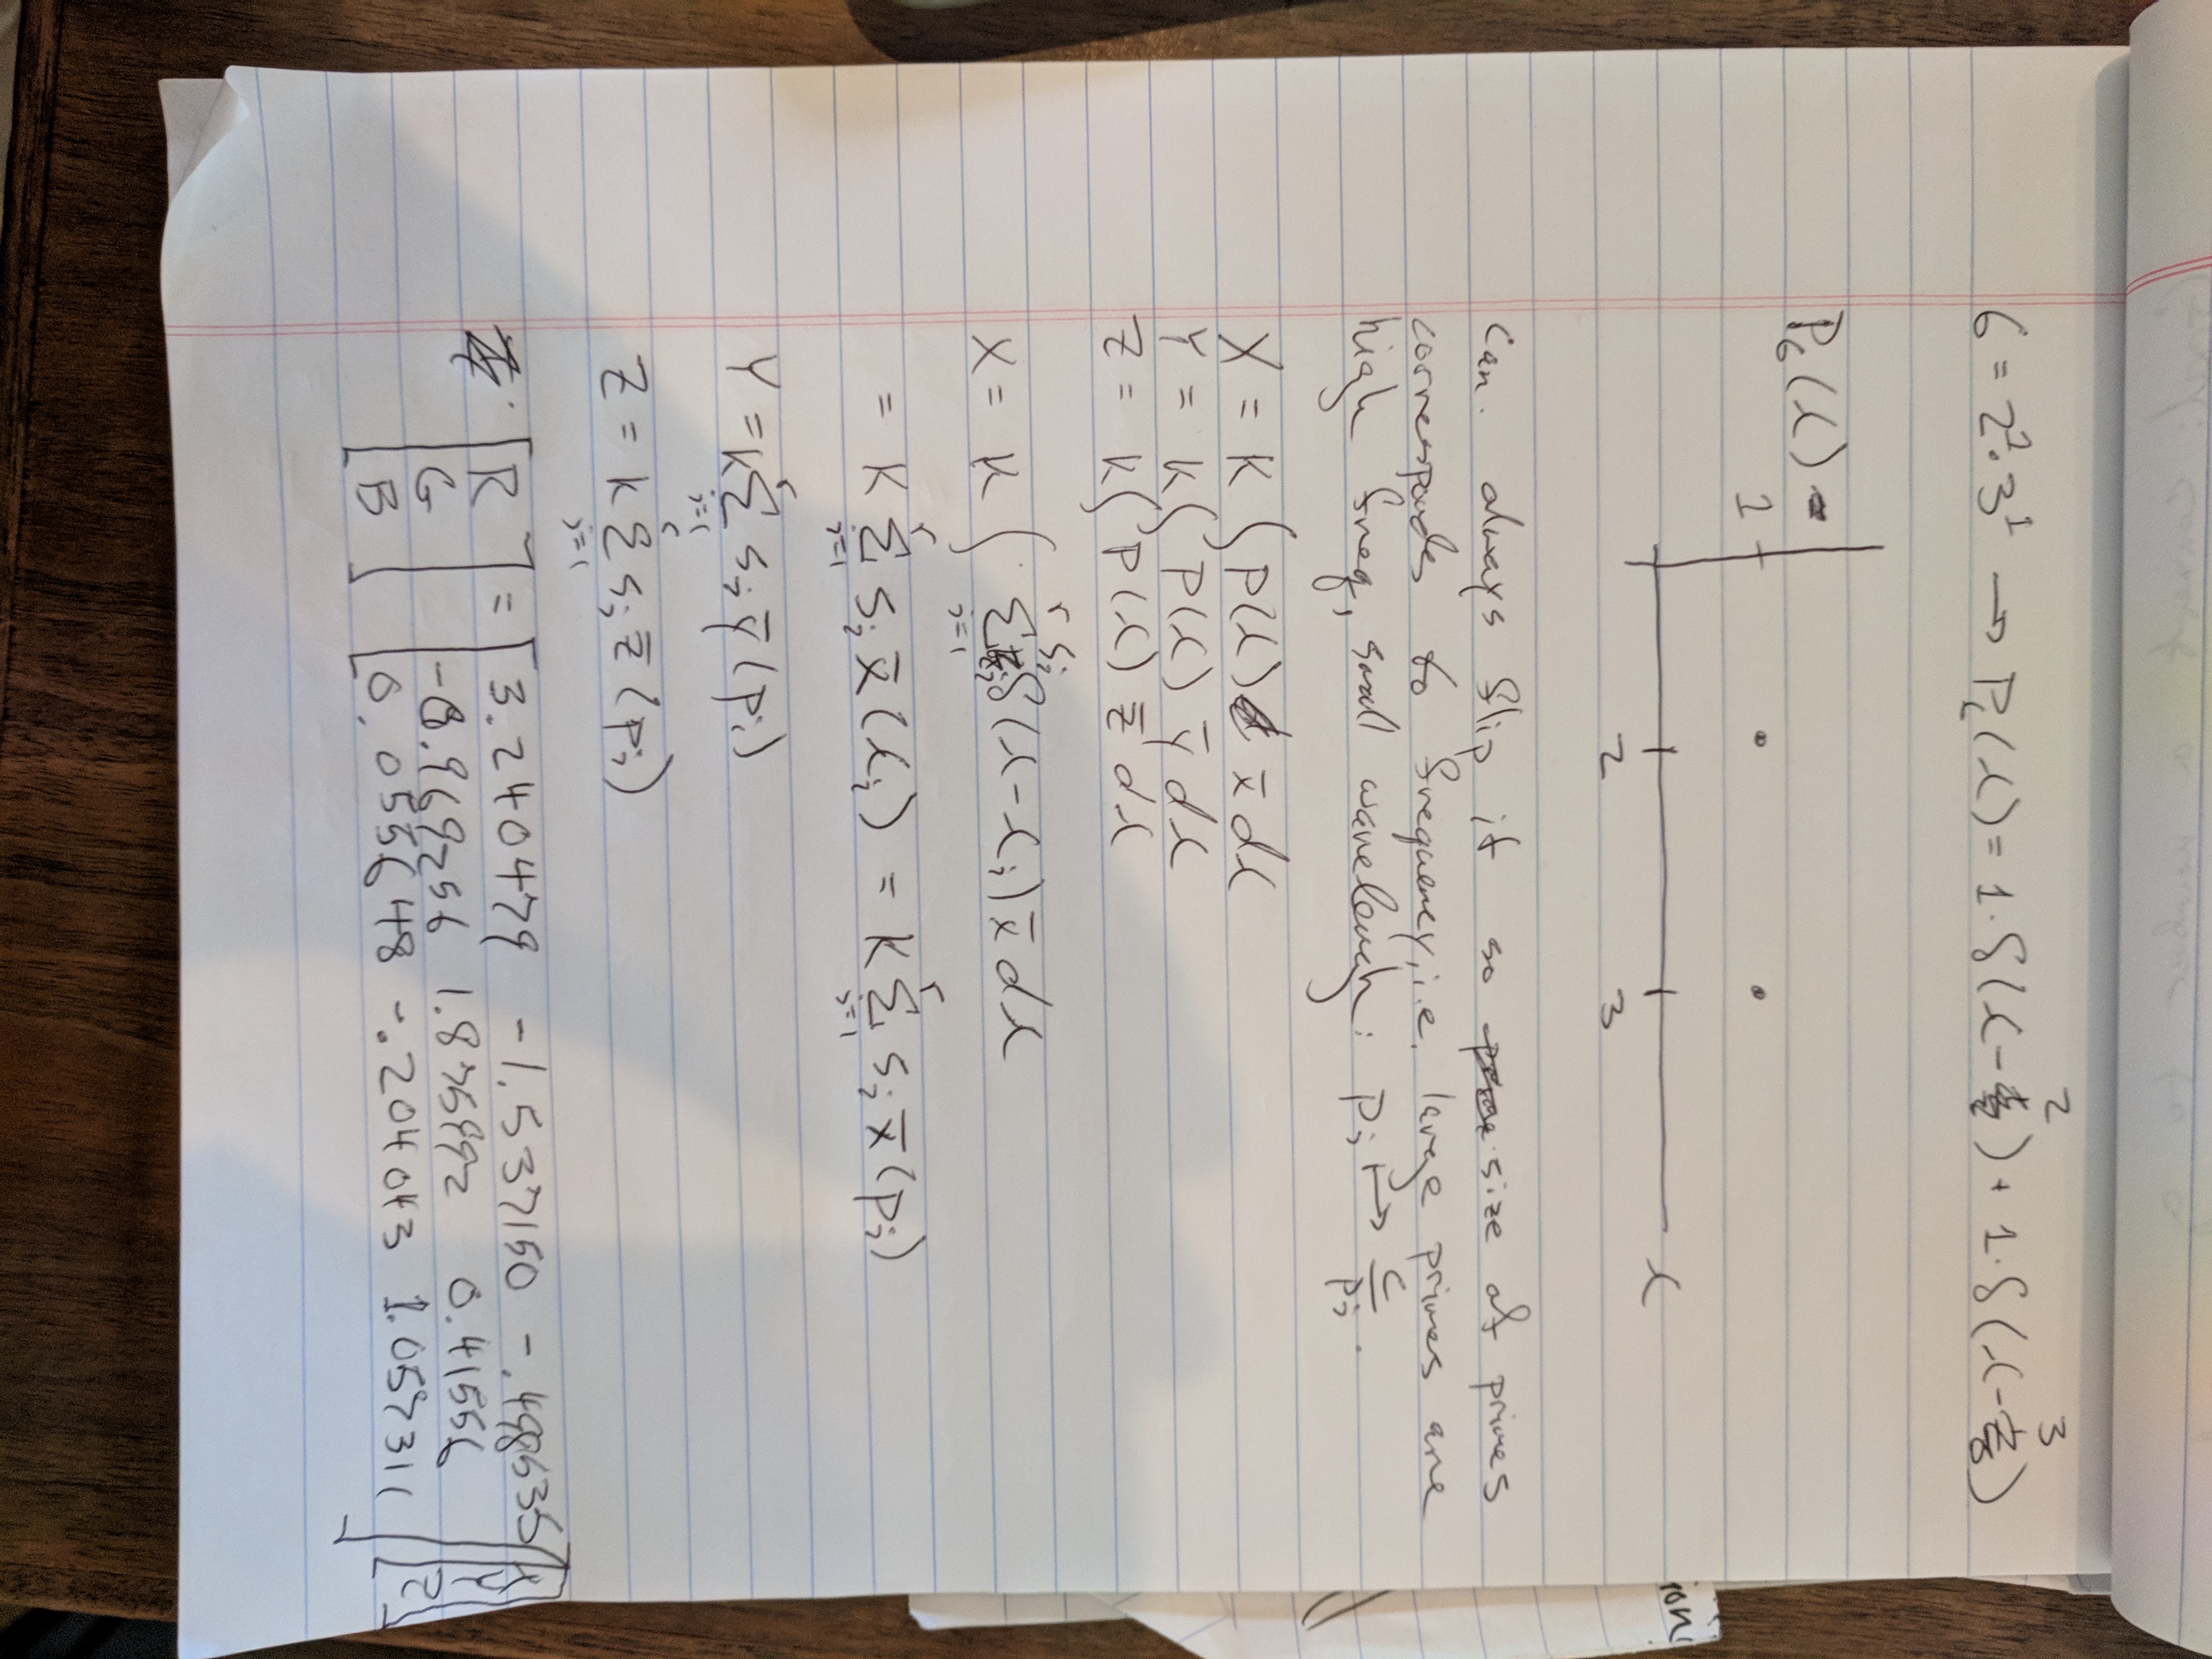 6 = 2¹·3¹ → P₆(λ) = 1·δ(λ-2) + 1·δ(λ-3)
P₆(λ)
1
2 3 λ
Can always flip it so size of primes
corresponds to frequency, i.e. large primes are
high freq, small wavelength: pᵢ ↦ c/pᵢ.
X = K ∫ P(λ) x̄ dλ
Y = K ∫ P(λ) ȳ dλ
Z = K ∫ P(λ) z̄ dλ
X = K ∫ Σᵢ₌₁ʳ sᵢ δ(λ-λᵢ) x̄ dλ
= K Σᵢ₌₁ʳ sᵢ x̄(λᵢ) = K Σᵢ₌₁ʳ sᵢ x̄(pᵢ)
Y = K Σᵢ₌₁ʳ sᵢ ȳ(pᵢ)
Z = K Σᵢ₌₁ʳ sᵢ z̄(pᵢ)
[R = [3.240479 -1.537150 -.498535] [X
G -0.969256 1.875992 0.41556 Y
B] 0.055648 -.204043 1.057311] Z]
ioni